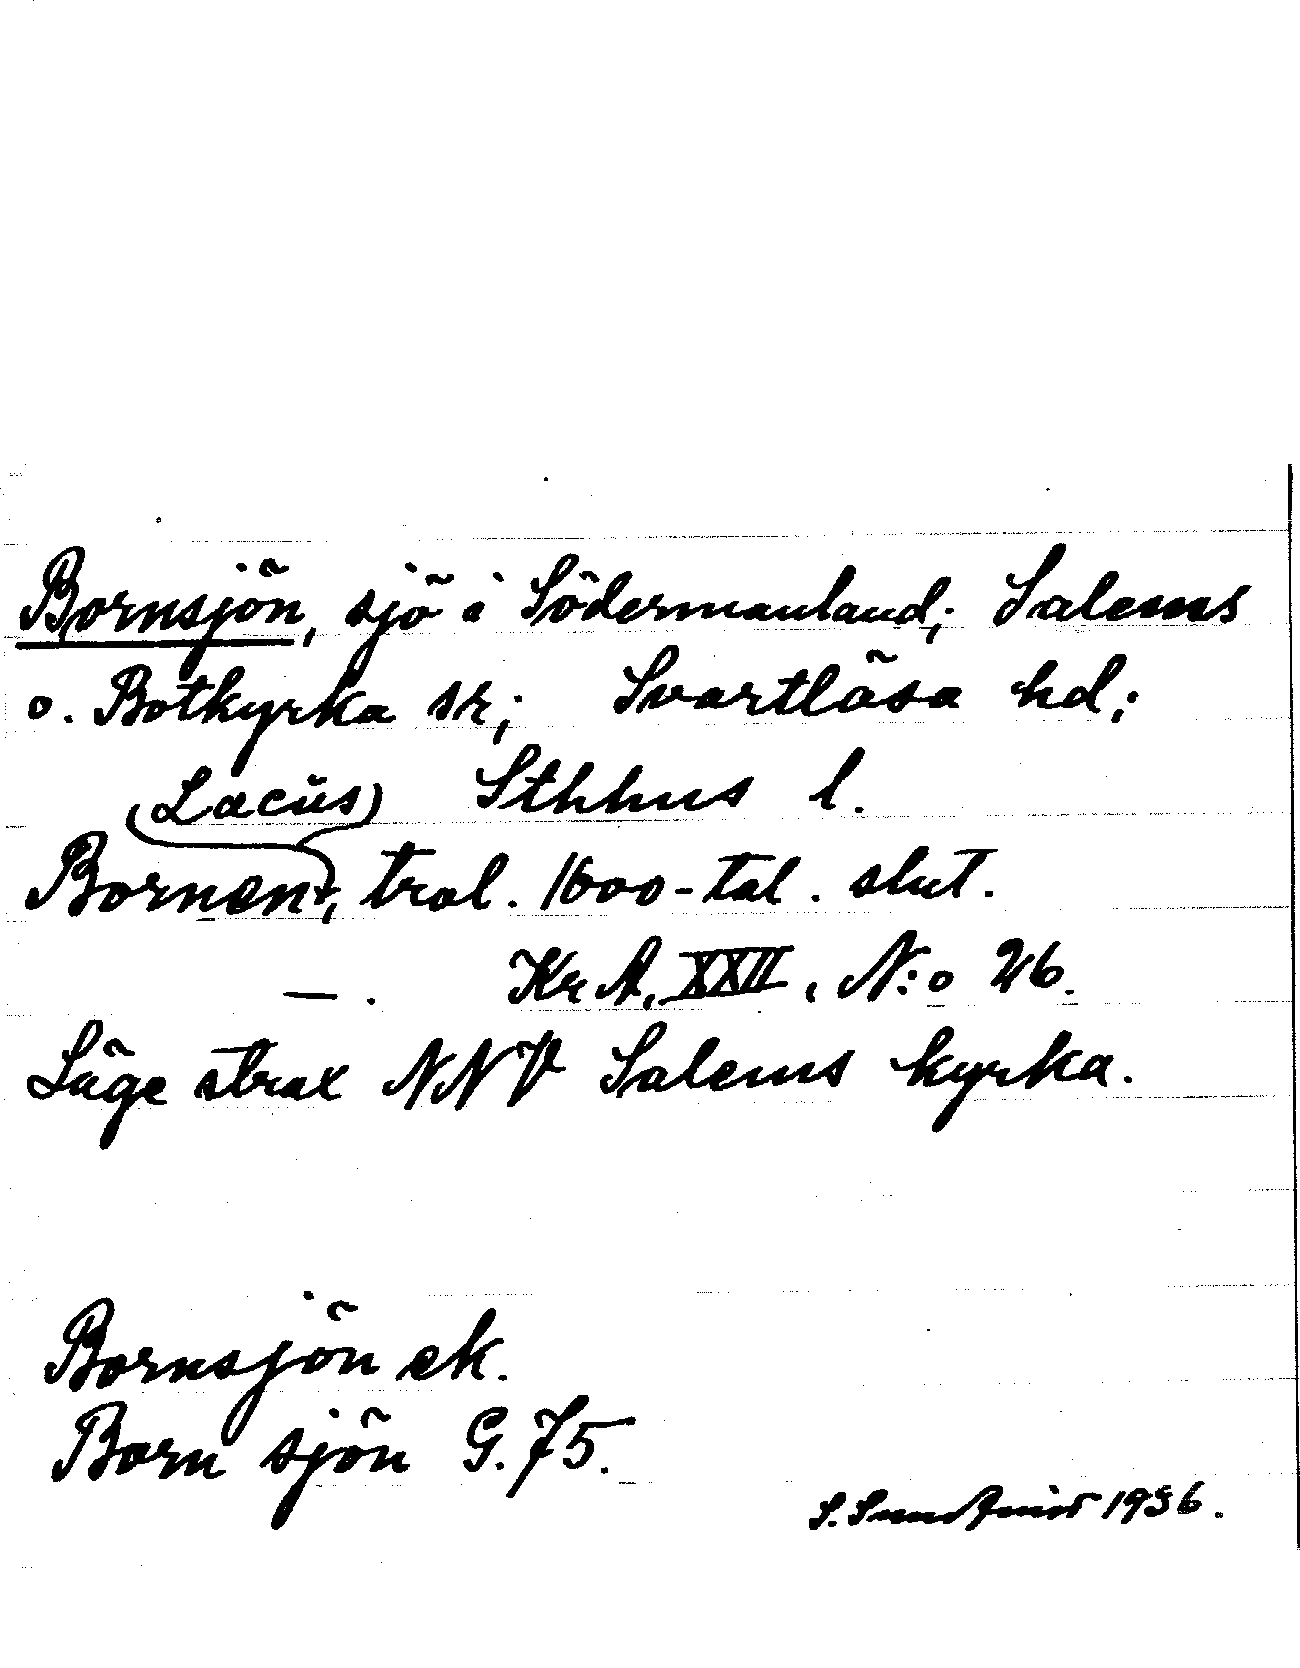 Bornsjön, sjö i Södermanland; Salems
o. Botkyrka sr; Svartlösa hd;
(Lacus) Sthhus l.
Bornen, trol. 1600-tal. slut.
—. Kr A, XXII, N:o 26.
Läge strax NNV Salems kyrka.
Bornsjön ek.
Born sjön G. 75.
S. 1936.